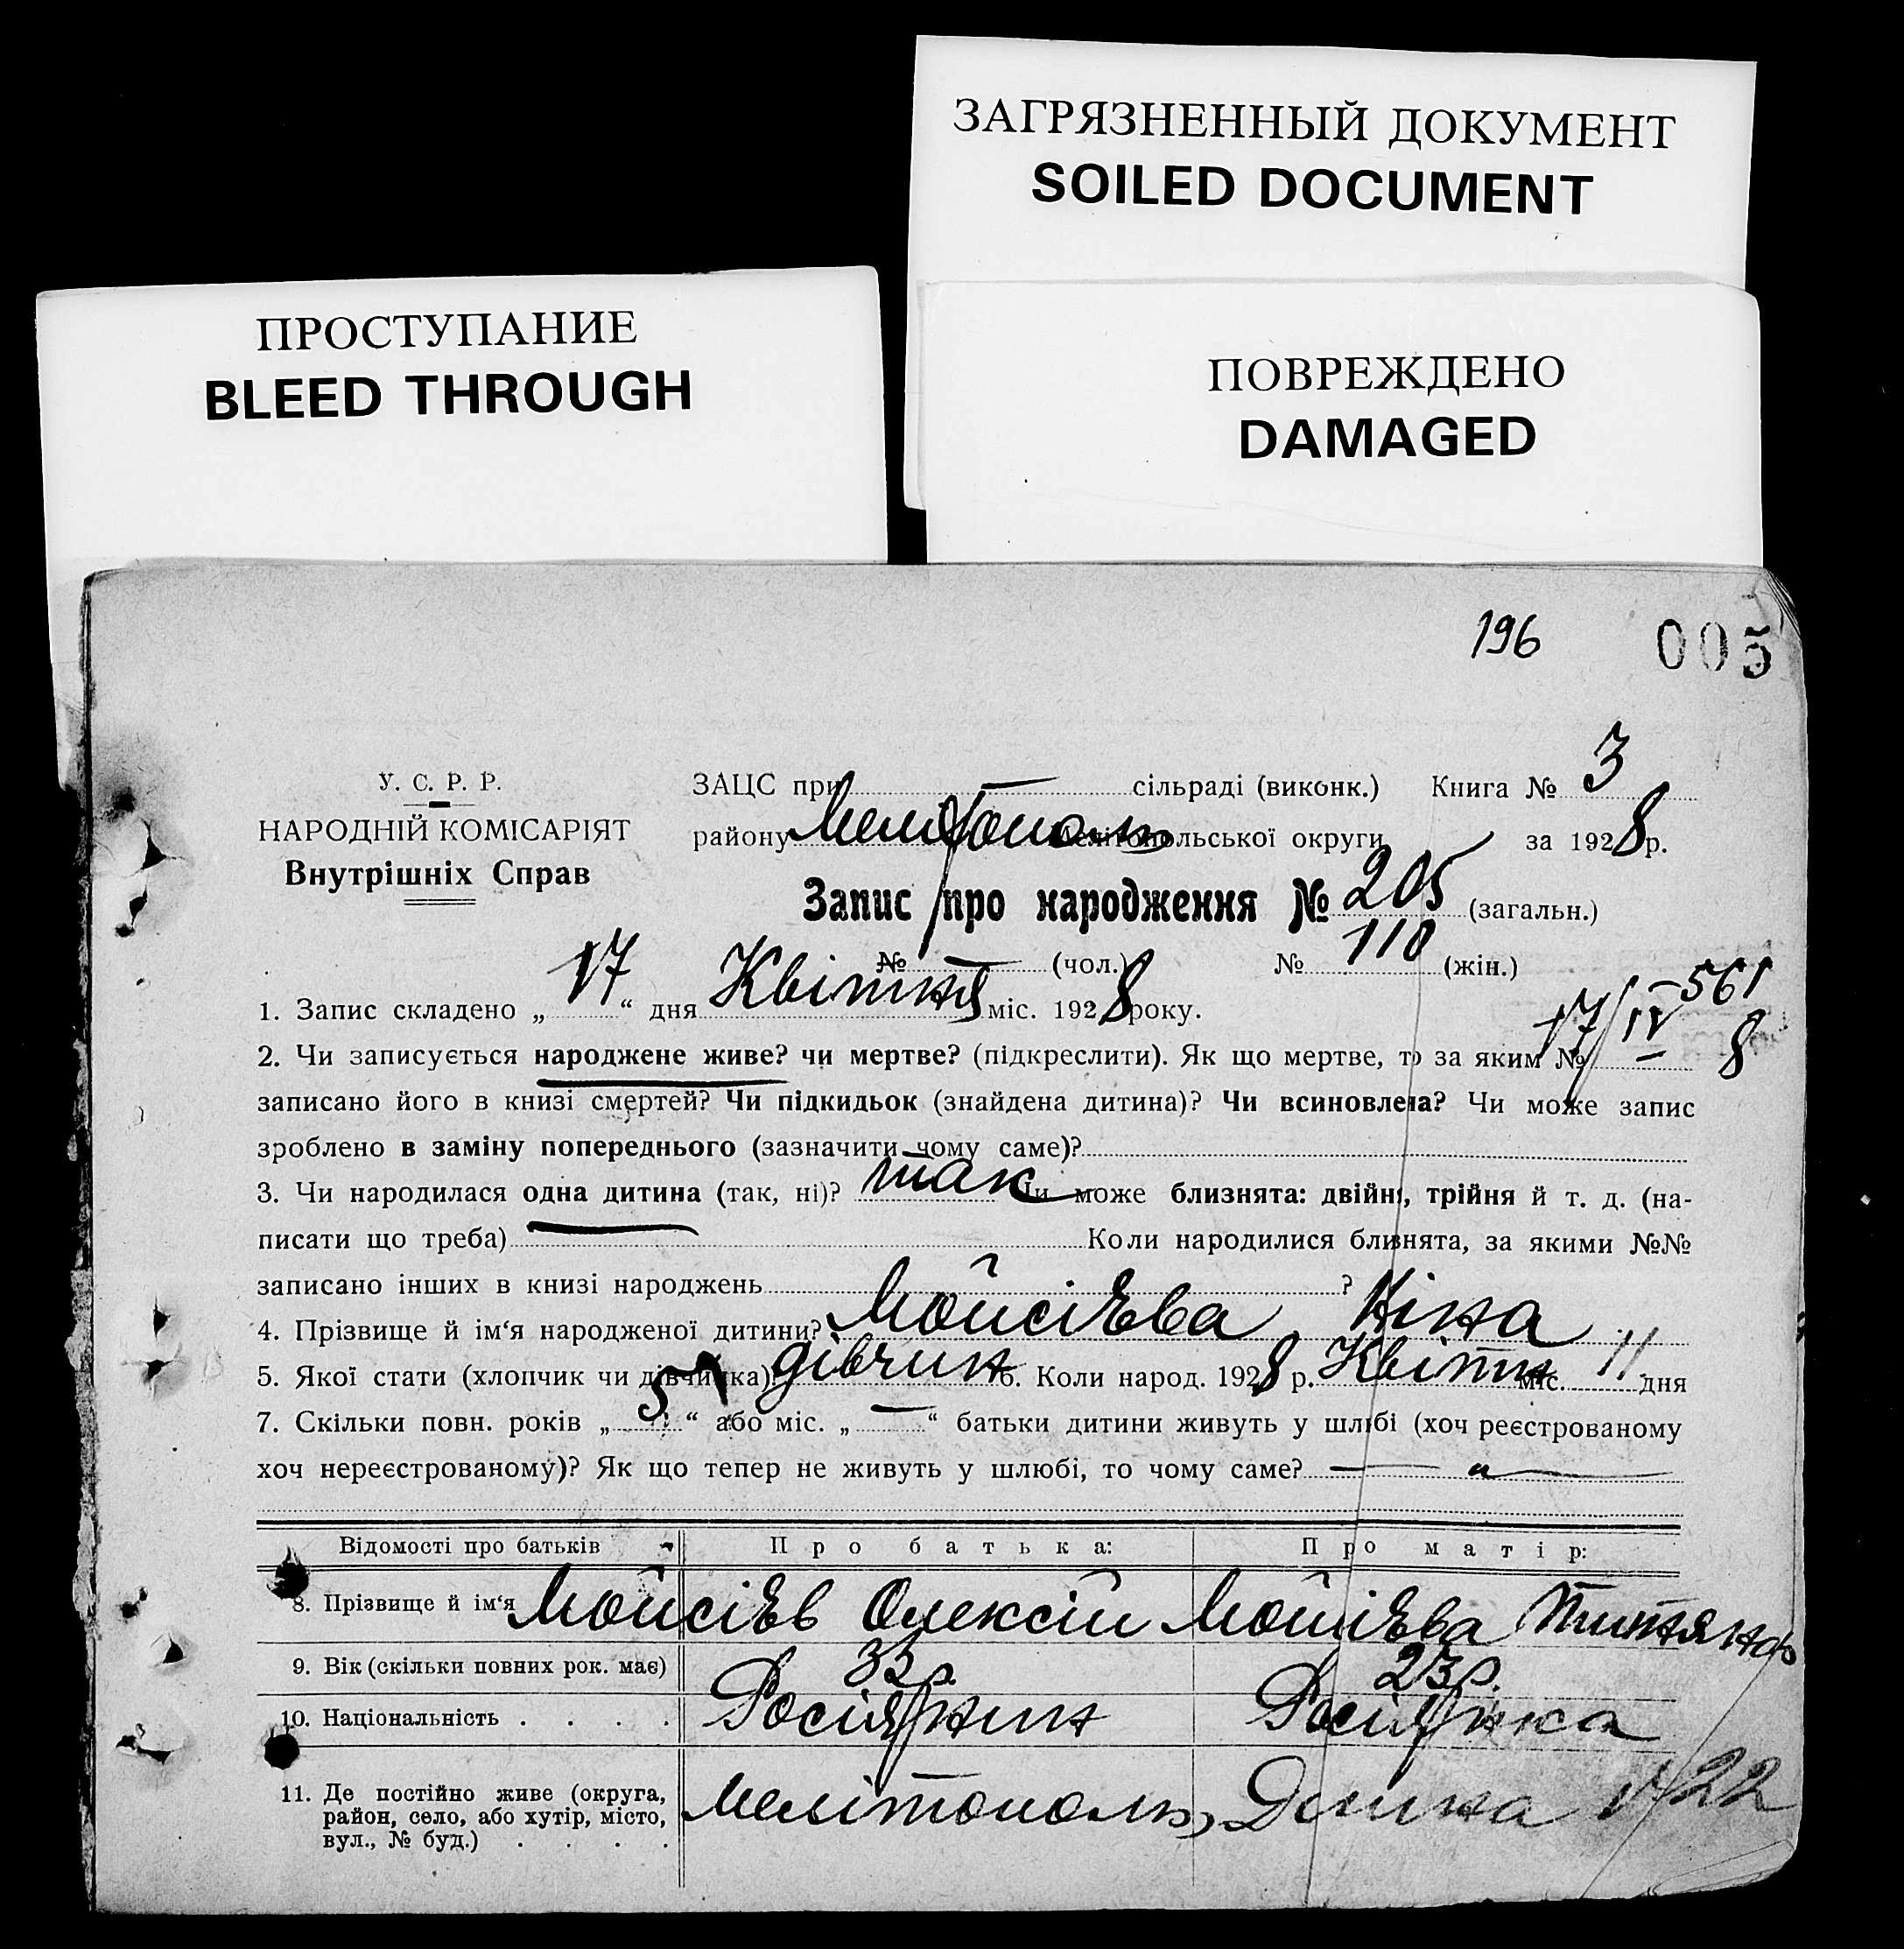 ЗАГРЯЗНЕННЫЙ ДОКУМЕНТ
SOILED DOCUMENT
ПРОСТУПАНИЕ
BLEED THROUGH
ПОВРЕЖДЕНО
DAMAGED
196 005
У. С. Р. Р.
НАРОДНІЙ КОМІСАРІЯТ
Внутрішніх Справ
ЗАЦС при — сільраді (виконк.) Книга № 3
району Мелітополь Мелітопольської округи за 1928 р.
Запис про народження № 205 (загальн.)
№ (чол.) № 110 (жін.)
1. Запис складено „17“ дня Квітня міс. 1928 року.
17/IV–561
8
2. Чи записується народжене живе? чи мертве? (підкреслити). Як що мертве, то за яким №
записано його в книзі смертей? Чи підкидьок (знайдена дитина)? Чи всиновлена? Чи може запис
зроблено в заміну попереднього (зазначити чому саме)?
3. Чи народилася одна дитина (так, ні)? так Чи може близнята: двійня, трійня й т. д. (на-
писати що треба) Коли народилися близнята, за якими №№
записано інших в книзі народжень ?
4. Прізвище й ім‘я народженої дитини? Мойсієва Ніна
5. Якої стати (хлопчик чи дівчинка) дівчина 6. Коли народ. 1928 р. Квітня міс. 11 дня
7. Скільки повн. років „5“ або міс. „—“ батьки дитини живуть у шлюбі (хоч реєстрованому
хоч нереєстрованому)? Як що тепер не живуть у шлюбі, то чому саме? — „ —
Відомості про батьків Про батька: Про матір:
8. Прізвище й ім‘я Мойсієв Олексій Мойсієва Титяна
9. Вік (скільки повних рок. має) 33 р. 23 р.
10. Національність . . . . Росіянин Росіянка
11. Де постійно живе (округа,
район, село, або хутір, місто,
вул., № буд.) . . . .
Мелітополь, 22